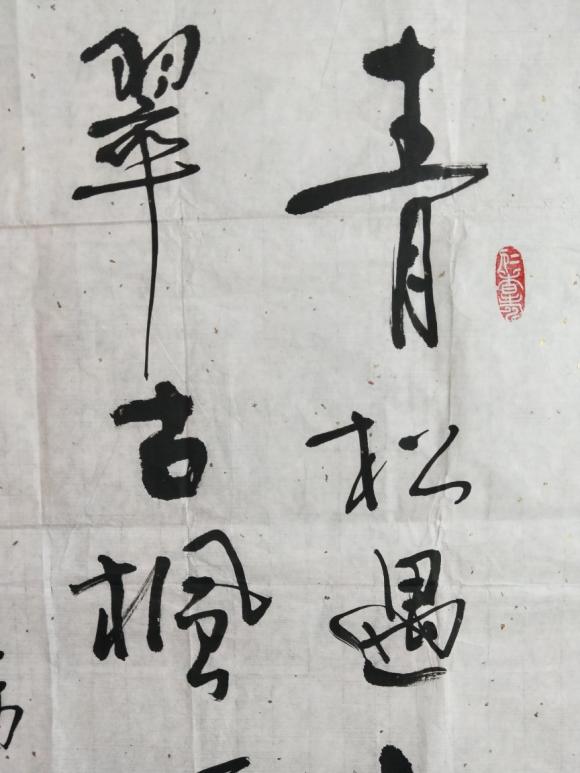 青松遇
翠古楓